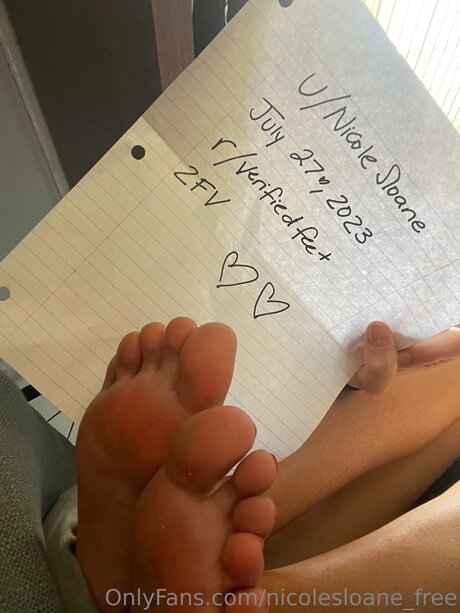 u/Nicole Sloane
July 27, 2023
r/Verifiedfeet
2FV
OnlyFans.com/nicolesloane_free